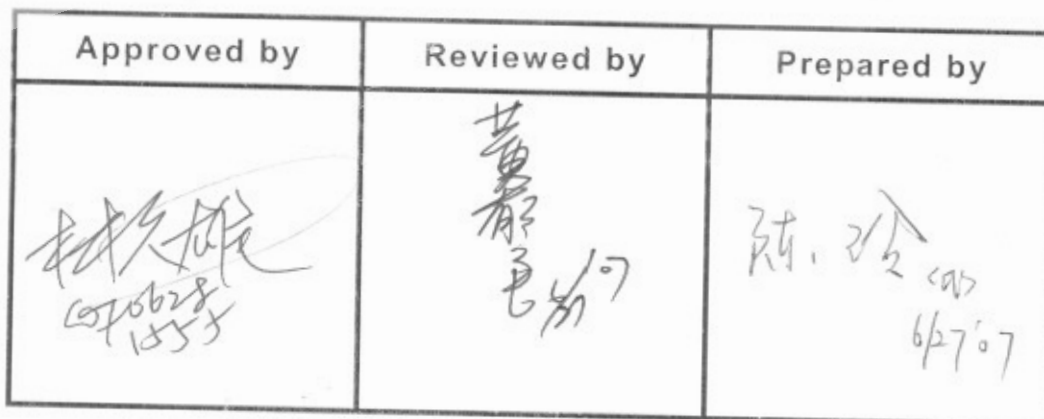 Approved by
Reviewed by
Prepared by
林久雄
070628
1855
黃
陳
6/27'07